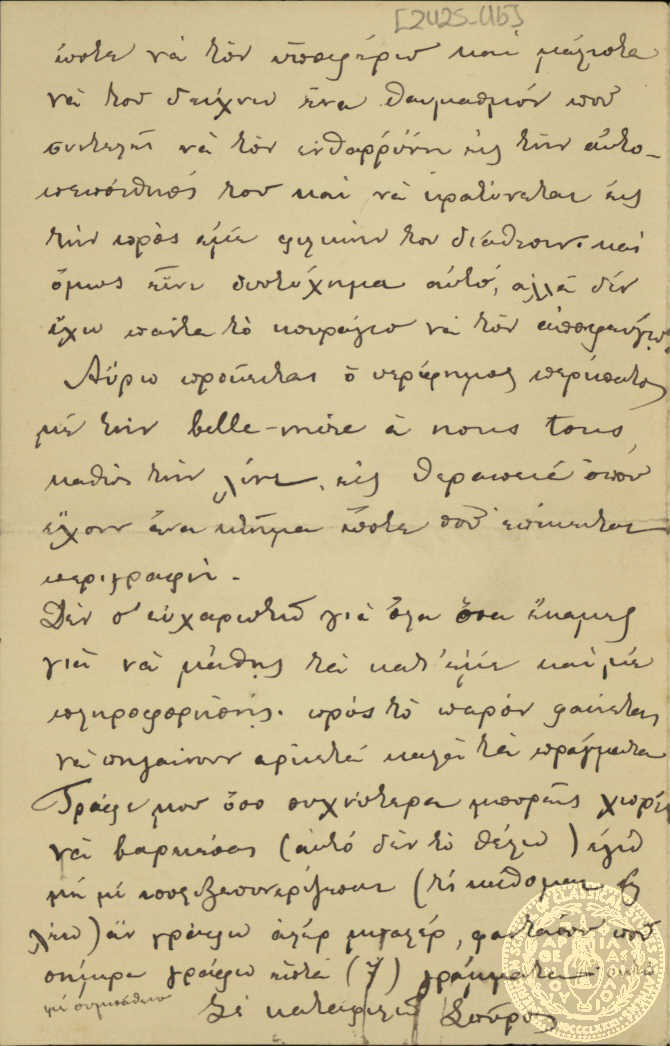 [2425-(15]
ὥστε νὰ τὸν ὑποφέρω καὶ μάλιστα
νὰ τοῦ δείχνω ἕνα θαυμασμὸν ποῦ
συντελεῖ νὰ τὸν ἐνθαρρύνῃ εἰς τὴν αὐτο-
πεποίθησίν του καὶ νὰ κρατύνεται εἰς
τὴν πρὸς ἐμὲ φιλικήν του διάθεσιν. καὶ
ὅμως εἶνε δυστύχημα αὐτό, ἀλλὰ δὲν
ἔχω πάντα τὸ κουράγιο νὰ τὸν ἀποφεύγω.
Αὔριο πρόκειται ὁ περίφημος περίπατος
μὲ τὴν belle-mère à nous tous,
καθὼς τὴν λένε, εἰς Θεραπειά ὅπου
ἔχουν ἕνα κτῆμα ὥστε σοῦ ἐπίκειται
περιγραφή.
Δὲν σ' εὐχαριστῶ γιὰ ὅλα ὅσα ἔκαμες
γιὰ νὰ μάθῃς τὰ κατ' ἐμὲ καὶ μὲ
πληροφορήσῃς. πρὸς τὸ παρὸν φαίνεται
νὰ πηγαίνουν ἀρκετὰ καλὰ τὰ πράγματα
Γράφε μου ὅσο συχνότερα μπορεῖς χωρὶς
νὰ βαρκέσαι (αὐτὸ δὲν τὸ θέλω) ἐγὼ
μὴ μὲ (τί
) ἂν γράφω φαντάσου ποῦ
σήμερα γράφω ἑπτὰ (7) γράμματα
μὲ συμπάθειο
Σὲ καταφιλῶ Σπῦρος